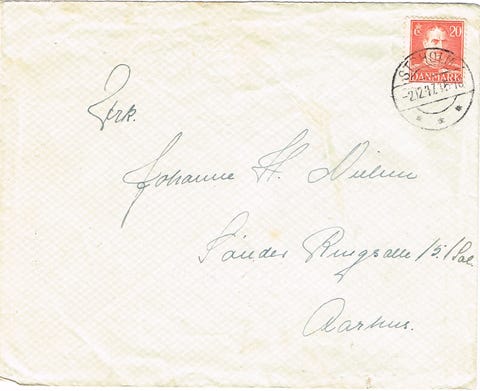 20
DANMARK
-2.12.47.
Frk.
Johanne H. Nielsen
Sönder Ringgade 15. 1 Sal.
Aarhus.